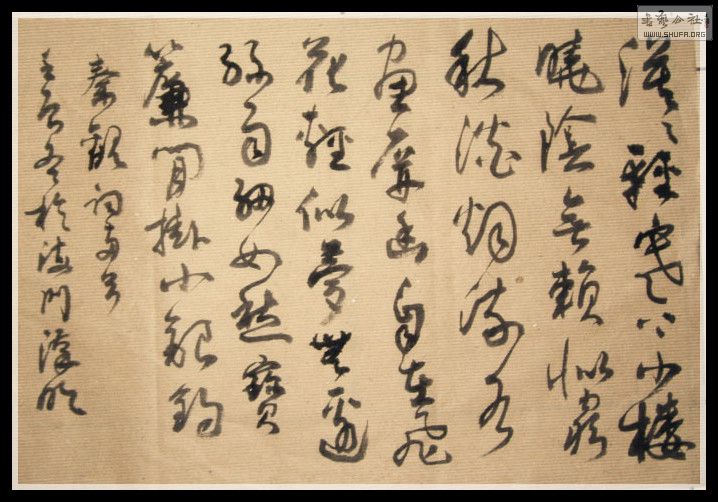 書藝公社
WWW.SHUFA.ORG
漠〻輕寒上小樓
曉陰無賴似窮
秋淡烟流水
畫屏幽自在飛
花輕似夢無邊
絲雨細如愁寶
簾閒掛小銀鈎
秦觀詞
於海門